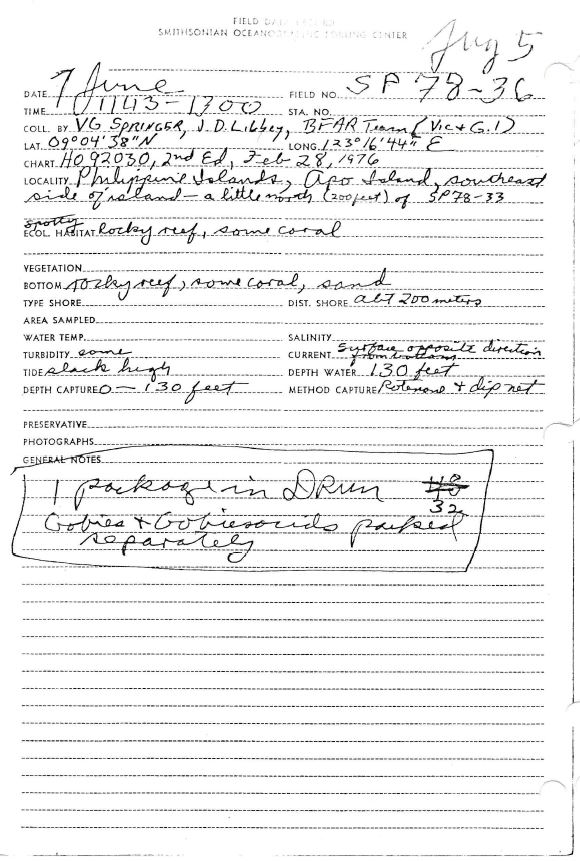 FIELD DATA RECORD
SMITHSONIAN OCEANOGRAPHIC SORTING CENTER
Aug 5
DATE 7 June FIELD NO. SP 78-36
TIME 1143-1300 STA. NO.
COLL. BY VG SPRINGER, J.D. Libbey, BFAR Team (Vic + G.I)
LAT. 09°04'38"N LONG. 123°16'44" E
CHART HO 92030, 2nd Ed, Feb 28, 1976
LOCALITY Philippine Islands, Apo Island, southeast
side of island - a little north (200 feet) of SP78-33
spotty
ECOL. HABITAT Rocky reef, some coral
VEGETATION
BOTTOM rocky reef, some coral, sand
TYPE SHORE DIST. SHORE abt 200 meters
AREA SAMPLED
WATER TEMP. SALINITY
TURBIDITY some CURRENT Surface opposite direction
from bottom
TIDE slack high DEPTH WATER 130 feet
DEPTH CAPTURE 0 - 130 feet METHOD CAPTURE Rotenone + dip net
PRESERVATIVE
PHOTOGRAPHS
GENERAL NOTES
1 package in DRUM
32
Gobies + Gobiesocids packed
separately